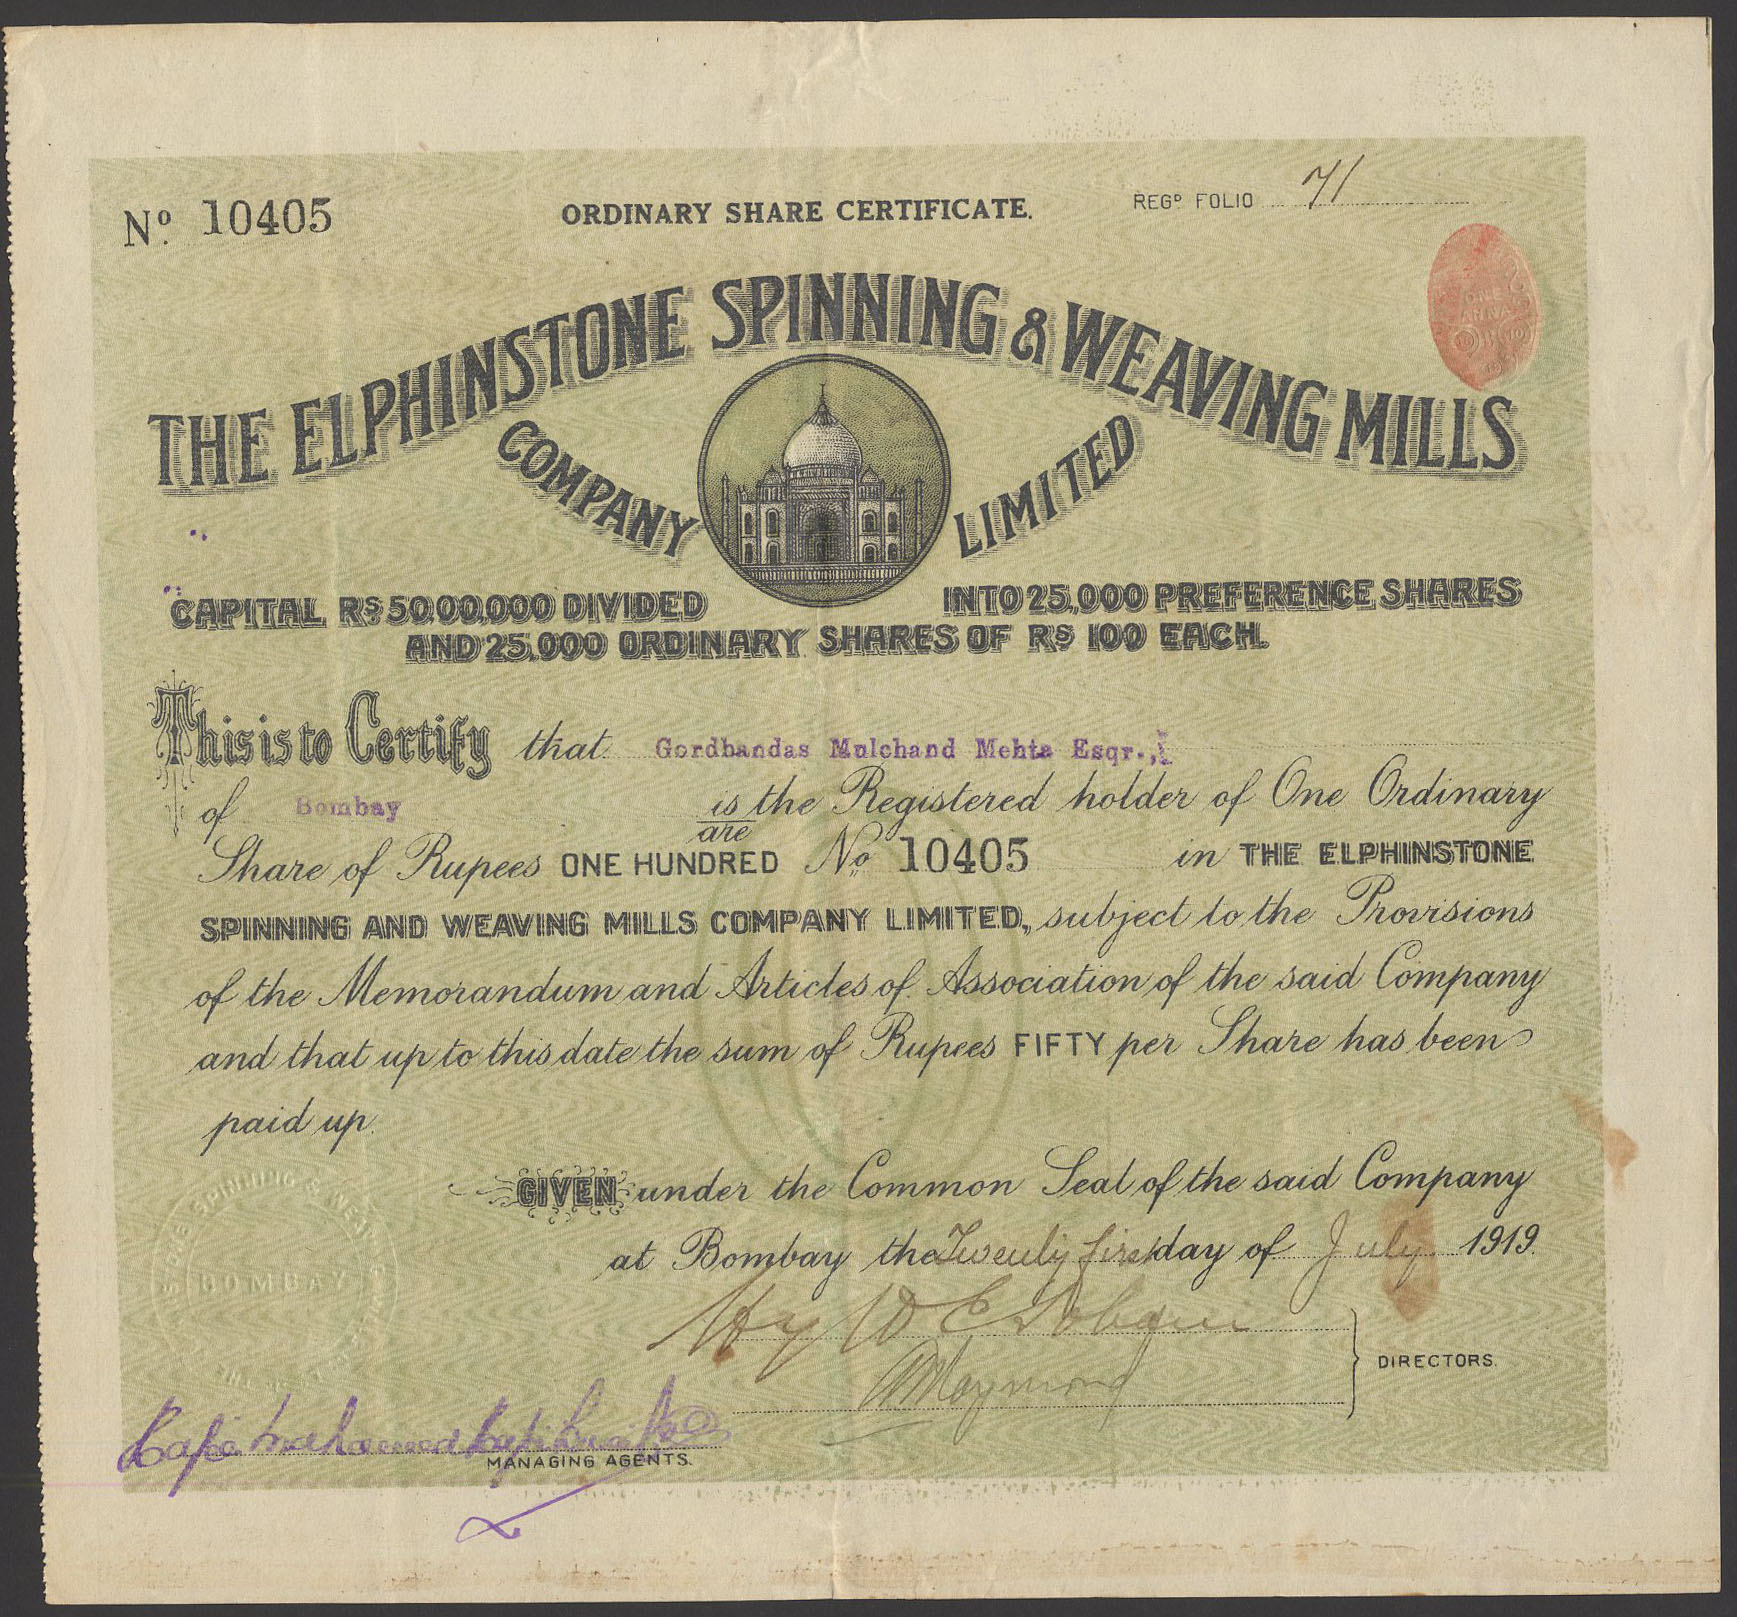 Nº. 10405
ORDINARY SHARE CERTIFICATE.
REGD FOLIO 71
THE ELPHINSTONE SPINNING & WEAVING MILLS
COMPANY LIMITED
ONE
ANNA
CAPITAL RS 50,00,000 DIVIDED INTO 25,000 PREFERENCE SHARES
AND 25,000 ORDINARY SHARES OF RS 100 EACH.
This is to Certify that Gordhandas Mulchand Mehta Esqr.,
of Bombay is/are the Registered holder of One Ordinary
Share of Rupees ONE HUNDRED No 10405 in THE ELPHINSTONE
SPINNING AND WEAVING MILLS COMPANY LIMITED, subject to the Provisions
of the Memorandum and Articles of Association of the said Company
and that up to this date the sum of Rupees FIFTY per Share has been
paid up.
GIVEN under the Common Seal of the said Company
at Bombay the Twenty first day of July 1919.
BOMBAY
DIRECTORS.
MANAGING AGENTS.